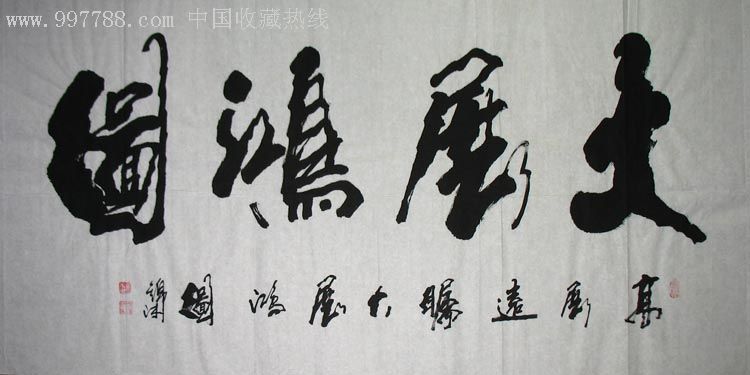 www.997788.com 中国收藏热线
大展鴻圖
高瞻遠矚大展鴻圖